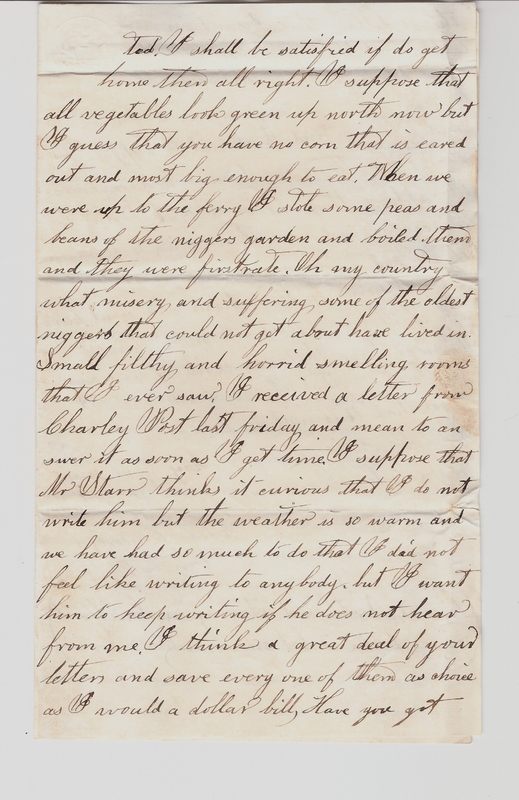 ted. I shall be satisfied if do get
home then all right. I suppose that
all vegetables look green up north now but
I guess that you have no corn that is eared
out and most big enough to eat. When we
were up to the ferry I stole some peas and
beans of the niggers garden and boiled them
and they were firstrate. Oh my country
what misery and suffering some of the oldest
niggers that could not get about have lived in.
Small filthy and horrid smelling rooms
that I ever saw. I received a letter from
Charley Post last friday and mean to an
swer it as soon as I get time. I suppose that
Mr Starr thinks it curious that I do not
write him but the weather is so warm and
we have had so much to do that I did not
feel like writing to anybody. but I want
him to keep writing if he does not hear
from me. I think a great deal of your
letters and save every one of them as choice
as I would a dollar bill, Have you got